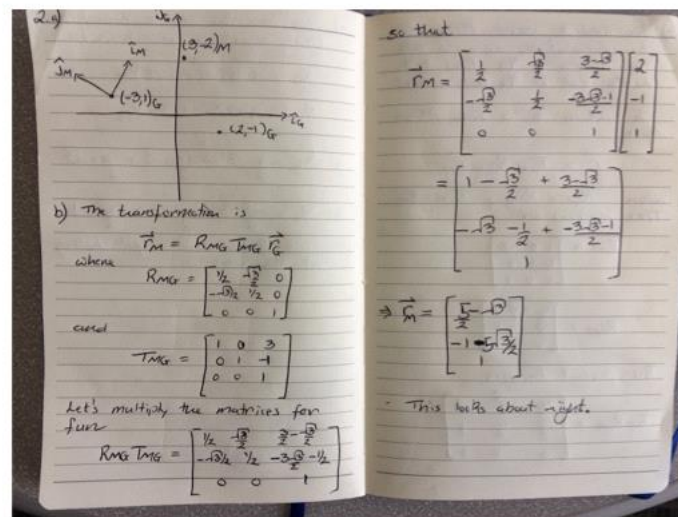 2.a)
ĵG
îM
(3,-2)M
ĵM
(-3,1)G
îG
(2,-1)G
b) The transformation is
r⃗M = RMG TMG r⃗G
where
RMG = [1/2 √3/2 0
-√3/2 1/2 0
0 0 1]
and
TMG = [1 0 3
0 1 -1
0 0 1]
Let's multiply the matrices for
fun
RMG TMG = [1/2 √3/2 3/2-√3/2
-√3/2 1/2 -3√3/2 -1/2
0 0 1]
so that
r⃗M = [1/2 √3/2 3-√3/2] [2
-√3/2 1/2 -3√3-1/2 -1
0 0 1 1]
= [1 - √3/2 + 3-√3/2
-√3 - 1/2 + -3√3-1/2
1]
⇒ r⃗M = [5/2 - √3
-1 - 5√3/2
1]
- This looks about right.